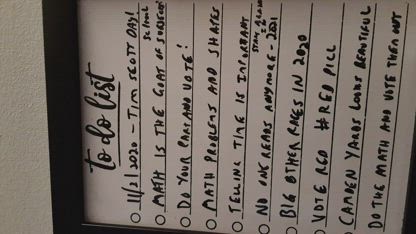 to do list
11/21/2020 - TIM SCOTT DAY!
MATH IS THE GOAT OF SUBJECTS
SCHOOL
DO YOUR PART AND VOTE!
MATH PROBLEMS AND SHAPES
TELLING TIME IS IMPORTANT
NO ONE READS ANYMORE - 2021
BIG OTHER RACES IN 2020
VOTE RED #RED PILL
CAMDEN YARDS LOOKS BEAUTIFUL
DO THE MATH AND VOTE THEM OUT